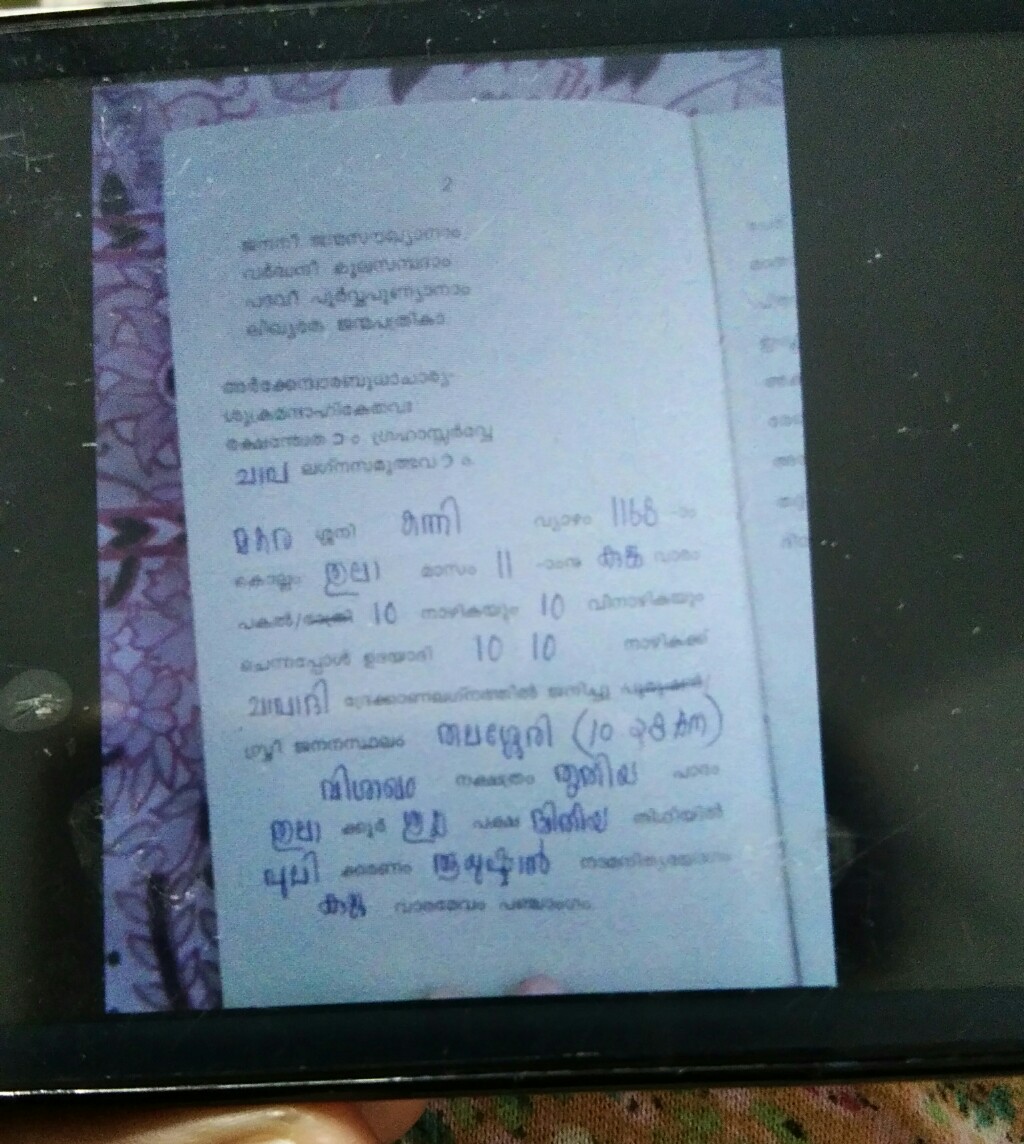 2
ജനനീ ജന്മസൗഖ്യാനാം
വർദ്ധനീ കുലസമ്പദാം
പദവീ പൂർവ്വപുണ്യാനാം
ലിഖ്യതേ ജന്മപത്രികാ
അർക്കേന്ദ്വാരബുധാചാര്യ-
ശുക്രമന്ദാഹികേതവഃ
രക്ഷന്ത്വേത ാ ം ഗ്രഹാസ്സർവ്വേ
ചാപ ലഗ്നസമുത്ഭവ ാ ം
മകര ശ്ശനി കന്നി വ്യാഴം 1168 -ാം
കൊല്ലം തുലാ മാസം 11 -ാംനു കുജ വാരം
പകൽ/രാത്രി 10 നാഴികയും 10 വിനാഴികയും
ചെന്നപ്പോൾ ഉദയാദി 10 10 നാഴികക്ക്
ചാപാദി ദ്രേക്കാണലഗ്നത്തിൽ ജനിച്ച പുരുഷൻ/
സ്ത്രീ ജനനസ്ഥലം തലശ്ശേരി (10
വിശാഖം നക്ഷത്രം തൃതീയ പാദം
തുലാ ക്കൂർ പക്ഷ ദ്വിതീയ തിഥിയിൽ
പുലി കരണം ആയുഷ്മാൻ നാമനിത്യയോഗം
കുജ വാരമേവം പഞ്ചാംഗം